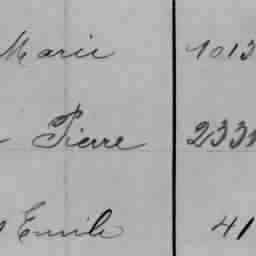 Marie 1013
Pierre 233
Emile 41